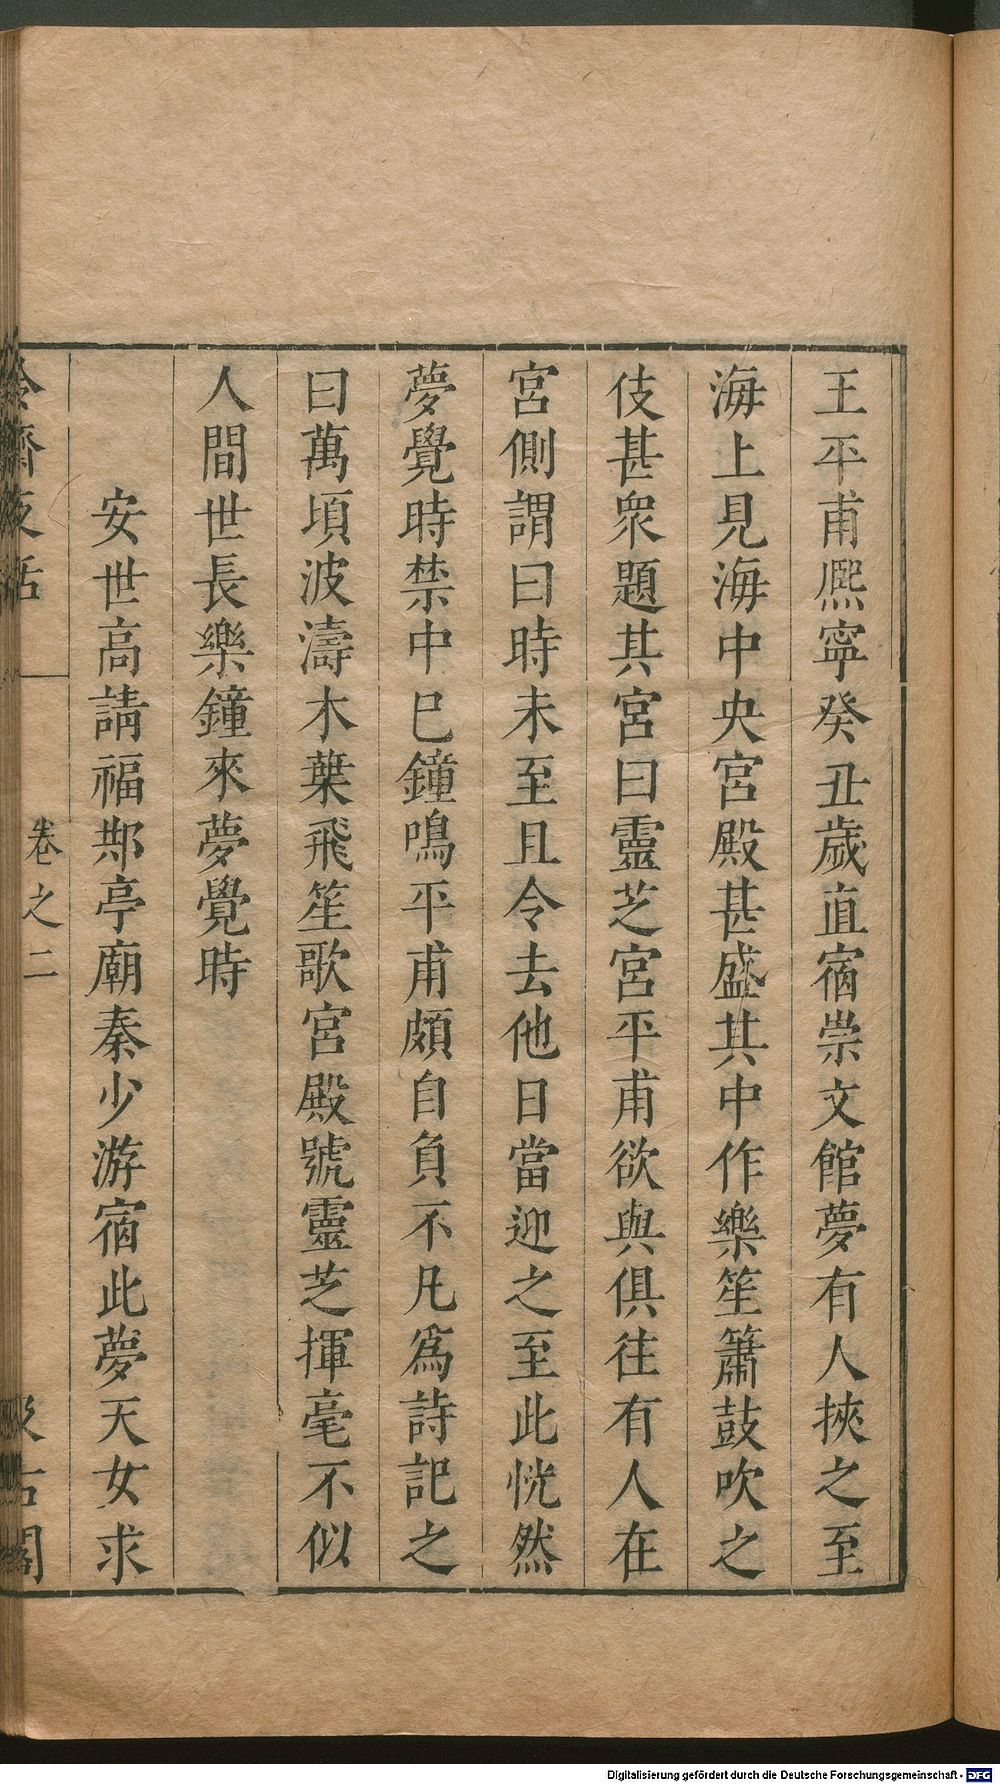 王平甫熈寧癸丑歲直宿崇文館夢有人挾之至
海上見海中央宮殿甚盛其中作樂笙簫鼓吹之
伎甚衆題其宮曰靈芝宮平甫欲與俱往有人在
宮側謂曰時未至且令去他日當迎之至此恍然
夢覺時禁中巳鐘鳴平甫頗自負不凡爲詩記之
曰萬頃波濤木葉飛笙歌宮殿號靈芝揮毫不似
人間世長樂鐘來夢覺時
安世高請福䢼亭廟秦少游宿此夢天女求
冷齋夜話
卷之二
汲古閣
Digitalisierung gefördert durch die Deutsche Forschungsgemeinschaft - DFG